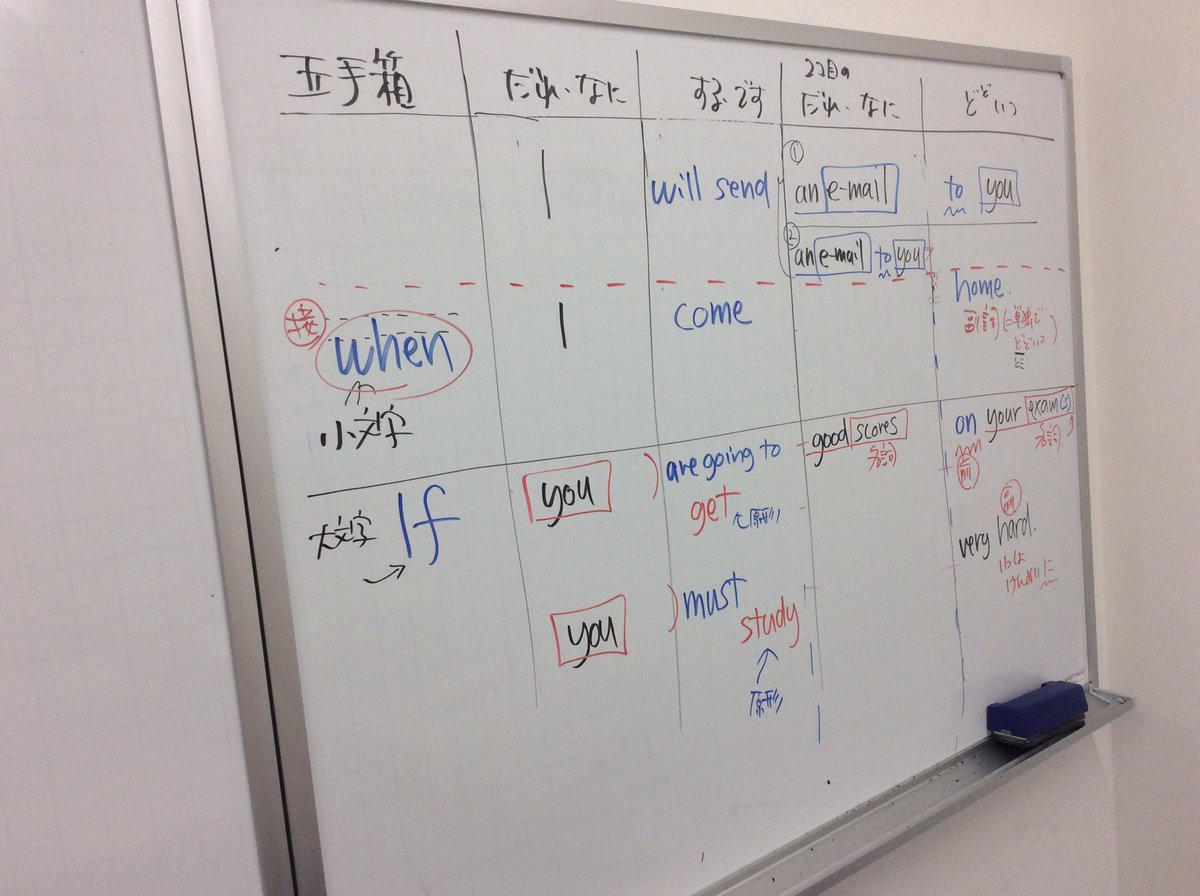 玉手箱 だれ・なに する・です 2つ目の だれ・なに どど いつ
I will send ① an e-mail to you
② an e-mail to you
接 when I come home.
副詞(=単独で
どどいつ
小文字
大文字 If you are going to good scores on your exam(s)
get 原形 名詞 前 名詞
副
very hard.
いっしょ
けんめいに
you must
study
原形